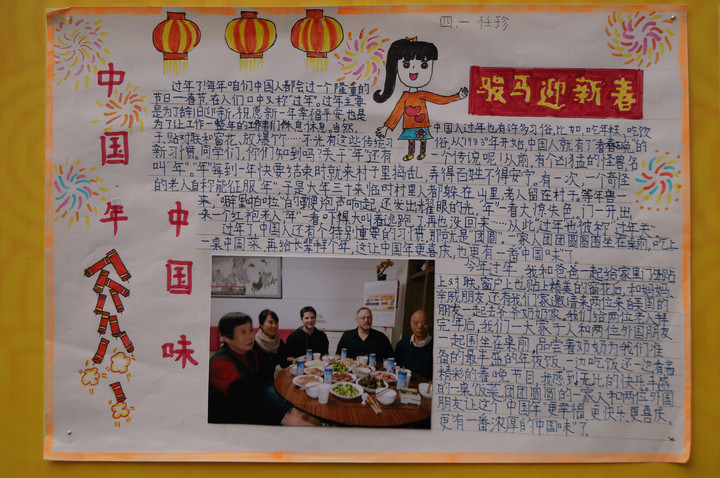 四.一 任珍
骏马迎新春
中国年
中国味
过年了!每年咱们中国人都会过一个隆重的
节日—春节,在人们口中又称"过年。过年主要
是为了辞旧迎新,祝愿新一年幸福平安,也是
为了让工作一整年的人们休息休息。当然,
于贴对联和窗花、放爆竹……不光有这些传统习
新习惯。同学们,你们知到吗?关于"年"还有
叫"年"。"年"每到一年快要结束时就来村子里捣乱,弄得百姓不得安宁。有一次,一个奇怪
的老人自称能征服"年"于是大年三十来临时村里人都躲在山里,老人留在村子。等年兽一
来,"噼里啪啦"的鞭炮声响起,还发出耀眼的光,"年"一看大惊失色。门一开,出
来一个红袍老人"年"一看,吓得大叫着逃跑了,再也没回来……从此,过年也被称"过年关"
过年了,中国人还有个特别重要的习惯,那就是"团圆"。一家人团团圆圆围坐在桌前,吃上
一桌中国菜,再给长辈拜个年,这让中国年更喜庆,也更有一番中国味了。
中国人过年也有许多习俗,比如:吃年糕、吃饺
俗,从1983年开始,中国人就有了"看春晚"的
一个传说呢!从前,有个凶猛的怪兽名
今年过年,我和爸爸一起给家里门外贴
上对联,窗户上也贴上精美的窗花后,和妈妈
亲戚朋友,还有我们家邀请来两位来自美国的
朋友一起去爷爷奶奶家。我们给两位老人拜
完年后,我们一大家子人和两位外国朋友
一起围坐在桌前,品尝着奶奶为我们准
备的最丰盛的年夜饭,一边吃饭还一边看着
精彩的春晚节目,我感到无比的快乐。丰盛
的一桌饭菜,团团圆圆的一家人和两位外国
朋友让这个中国年更幸福,更快乐,更喜庆,
更有一番浓厚的"中国味"了。